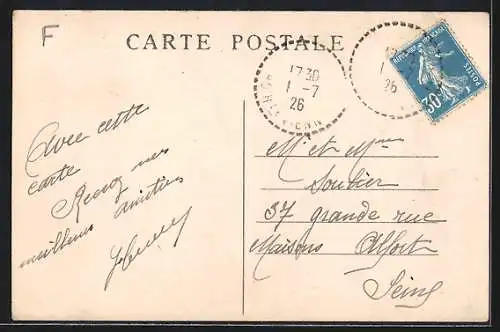 F
CARTE POSTALE
17 30
1 - 7
26
26
POSTES
30
Avec cette
carte
Recevez mes
meilleures amitiés
Mr et Mme
Soulier
37 grande rue
Maisons Alfort
Seine